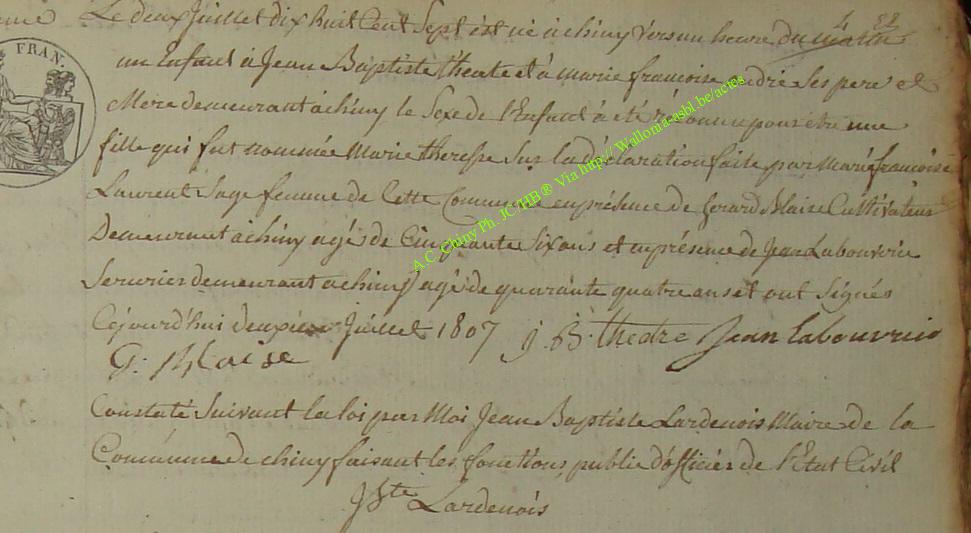 Le deux Juillet dix huit Cent Sept est né à chiny vers un heure du matin
un Enfant à Jean Baptiste theate et à marie francoise andré Ses pere et
Mere demeurant à chiny le Sexe de l'Enfant à eté réconnu pour etre une
fille qui fut nommée Marie theresse Sur la déclaration faite par Marie francoise
Laurent Sage femme de Cette Commune en présence de Gerard Blaise Cultivateur
Demeurant à chiny agé de Cinquante Six ans et en présence de Jean Labouvrie
Serurier demeurant à chiny agé de quarante quatre ans et ont Signés
Cejourd'hui Juillet 1807 j. B. thedre Jean Labouvrie
G. Blaise
Constaté Suivant la loi par Moi Jean Baptiste Lardenois Maire de la
Commune de chiny faisant les fonctions public d'officier de l'Etat Civil
Lardenois
FRAN.
A.C. Chiny Ph. JC/HB® Via http:// Wallonia-asbl.be/actes